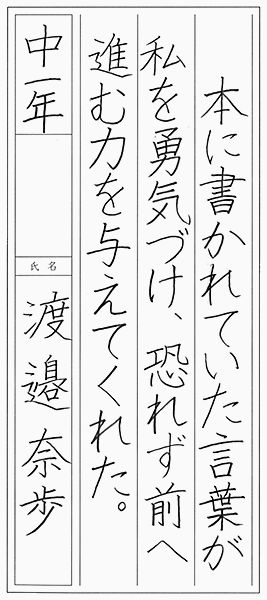 本に書かれていた言葉が
私を勇気づけ、恐れず前へ
進む力を与えてくれた。
中一年
氏名
渡邉奈歩